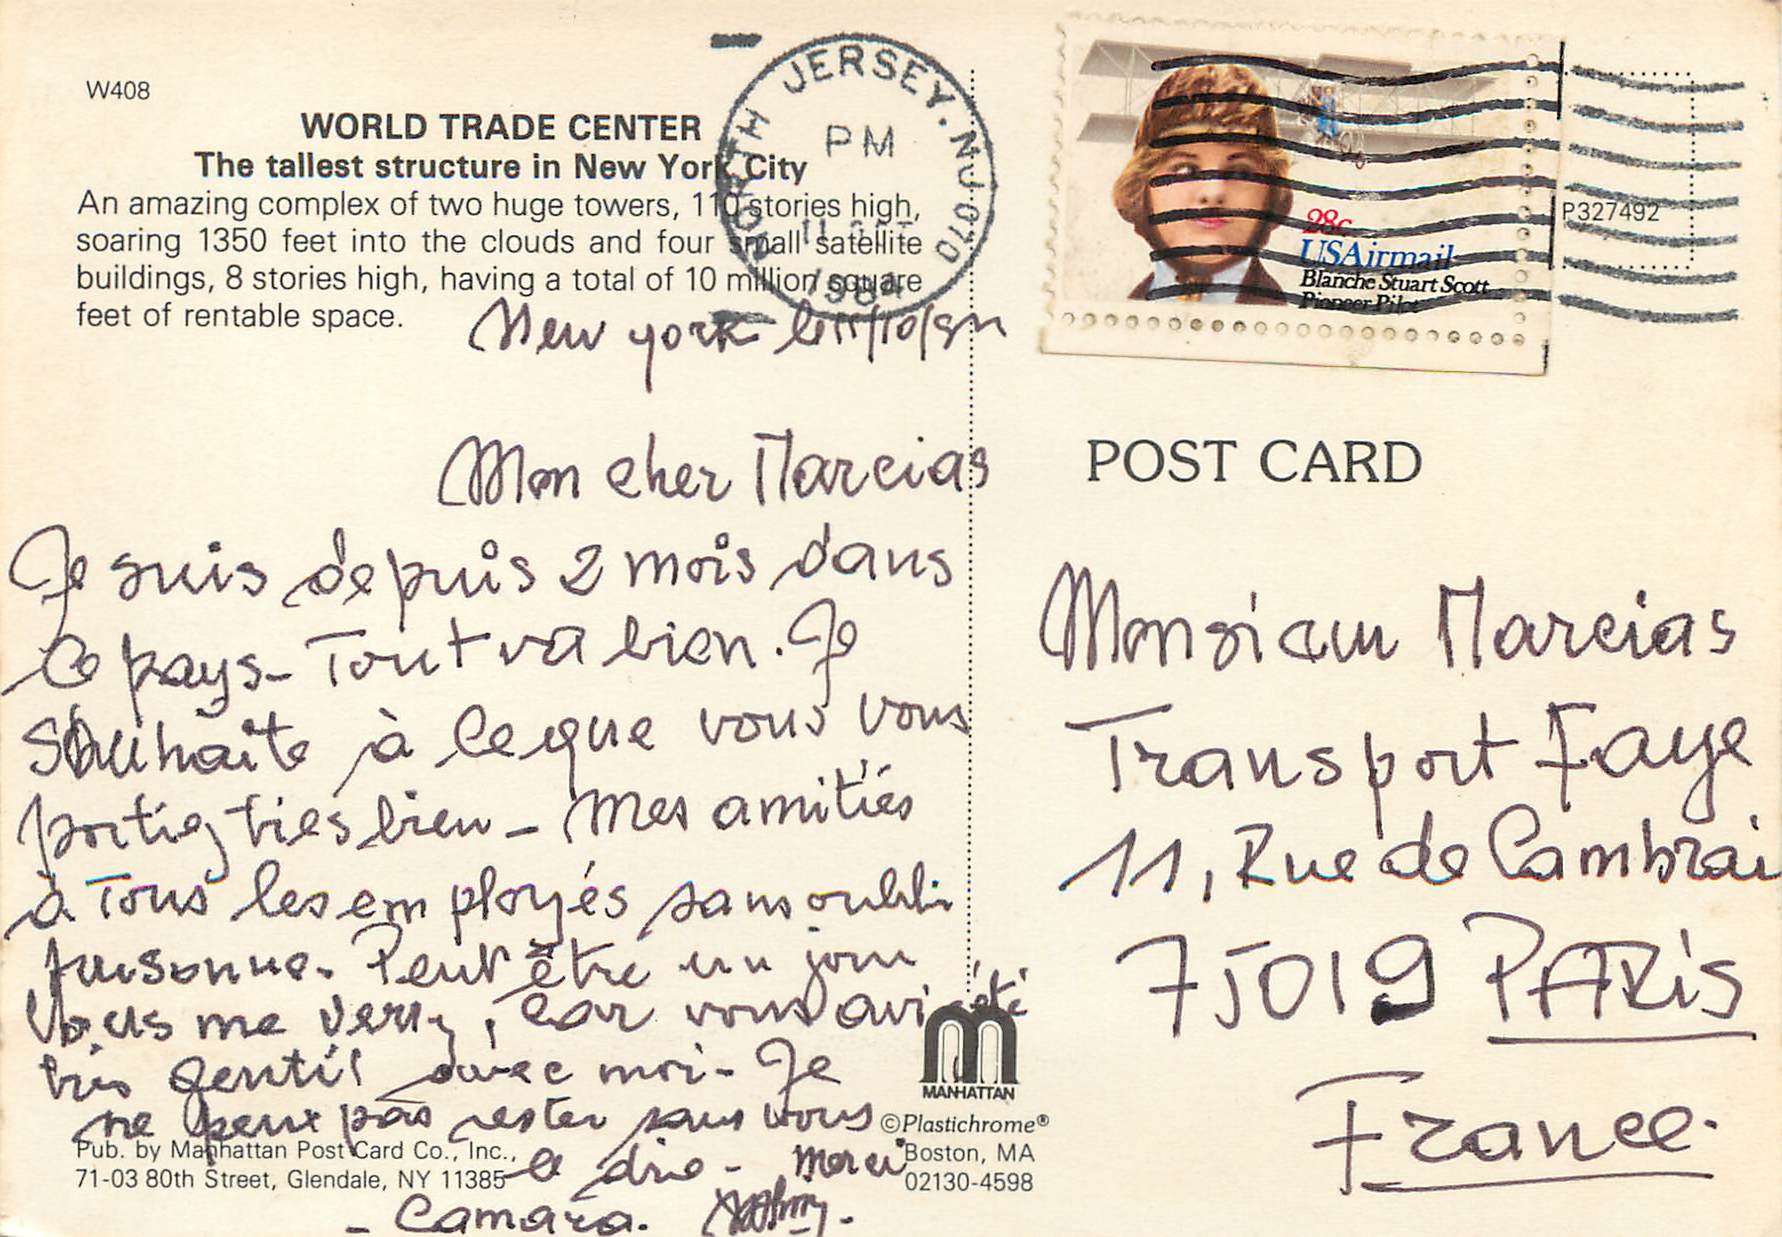 W408
WORLD TRADE CENTER
The tallest structure in New York City
An amazing complex of two huge towers, 110 stories high,
soaring 1350 feet into the clouds and four small satellite
buildings, 8 stories high, having a total of 10 million square
feet of rentable space.
NORTH JERSEY. NJ 070
PM
1984
28c
USAirmail
Blanche Stuart Scott
Pioneer Pilot
P327492
New york le 11/10/84
Mon cher Marcias
Je suis depuis 2 mois dans
le pays - Tout va bien. Je
souhaite à ce que vous vous
portiez très bien - Mes amitiés
à Tous les employés sans oubli
personne. Peut être un jour
Vous me verrez, car vous avez été
très gentil avec moi - Je
ne peux pas rester sans vous
le dire - Merci
- Camara.
POST CARD
Monsieur Marcias
Transport Faye
11, Rue de Cambrai
75019 PARIS
France.
MANHATTAN
Pub. by Manhattan Post Card Co., Inc.,
71-03 80th Street, Glendale, NY 11385
©Plastichrome®
Boston, MA
02130-4598